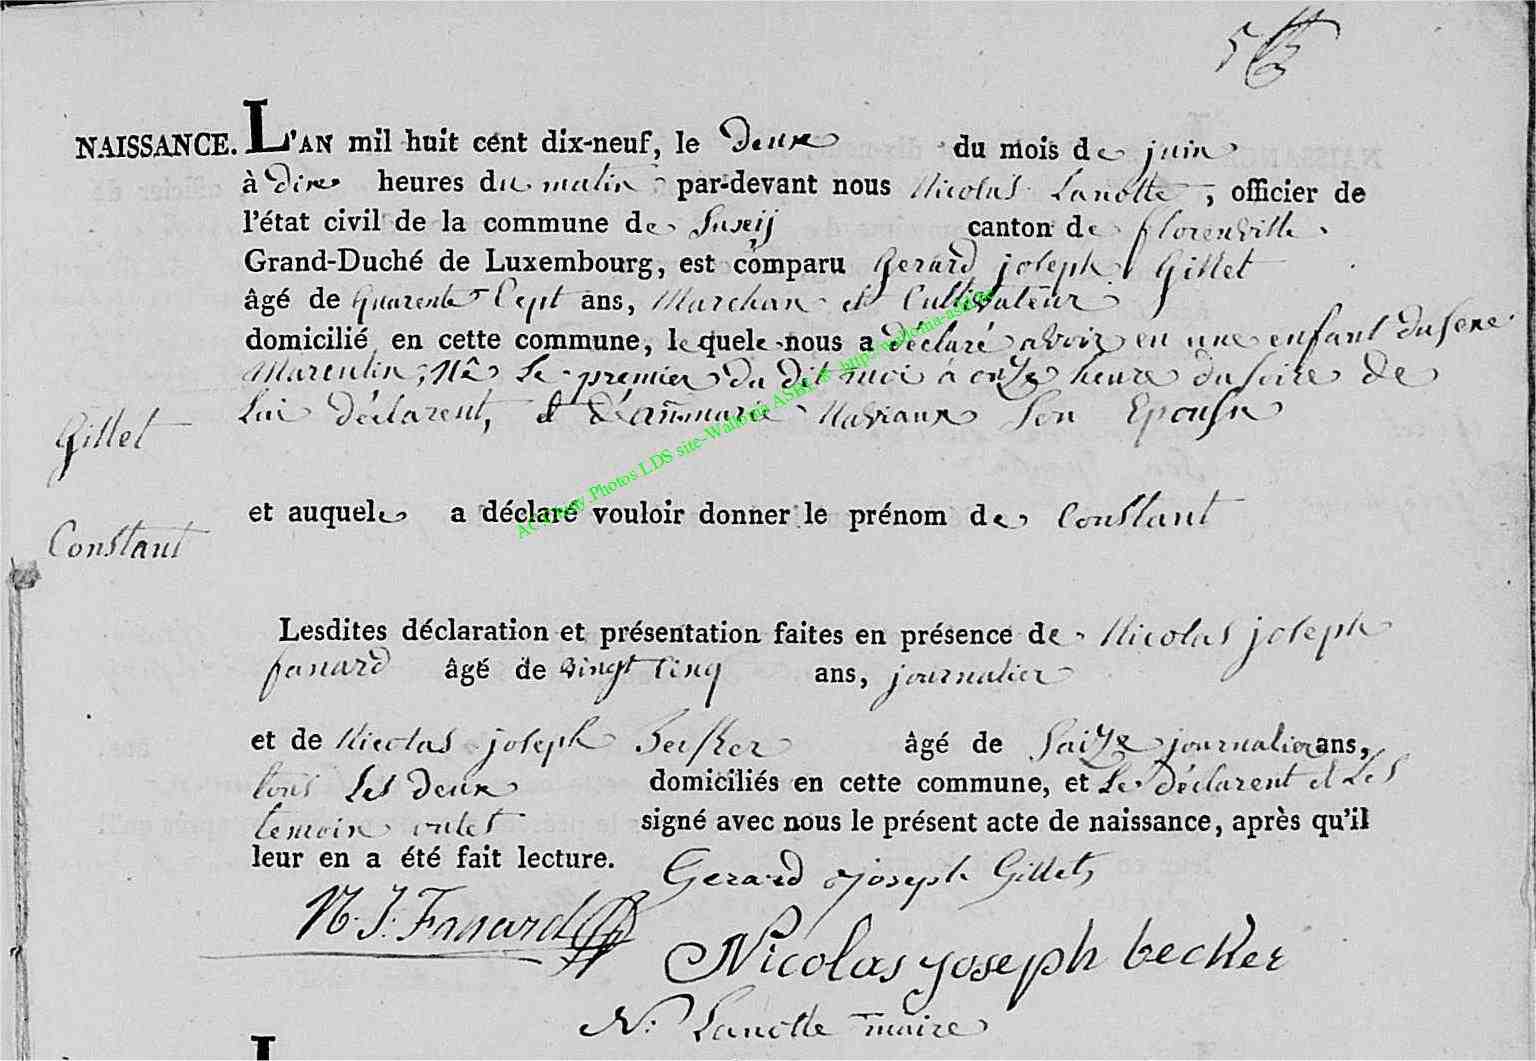 NAISSANCE. L'AN mil huit cent dix-neuf, le deux du mois de juin
à dix heures du matin par-devant nous Nicolas Lanotte, officier de
l'état civil de la commune de Suxeij canton de florenville
Grand-Duché de Luxembourg, est comparu Gerard joseph Gillet
âgé de quarente Cept ans, Marchan et Cultivateur
domicilié en cette commune, lequel nous a déclaré avoir eu une enfant du sexe
Marculin, Né Le premier du dit moi a onze heure du soire de
Lui déclarent, et d'annmarie Son Epouse
Gillet
et auquel a déclaré vouloir donner le prénom de Constant
Constant
Lesdites déclaration et présentation faites en présence de Nicolas joseph
fanard âgé de vingt Cinq ans, journalier
et de Nicolas joseph âgé de journalier ans,
tous Les deux domiciliés en cette commune, et Le déclarent et Les
temoin ontet signé avec nous le présent acte de naissance, après qu'il
leur en a été fait lecture.
Gerard joseph Gillet
N. J. Fanard
Nicolas joseph becker
N. Lanotte maire
Photos LDS site-Wallonia ASBL